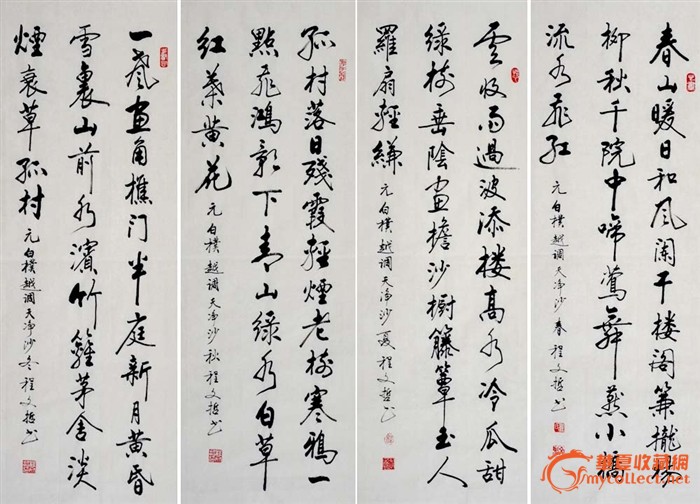 春山暖日和风闌干楼阁簾攏楊
柳秋千院中啼鶯舞燕小橋
流水飛紅 元白樸越调天净沙春程文哲书
雲收雨過波添楼高水冷瓜甜
绿樹垂陰畫檐沙橱籐簟玉人
羅扇輕縑 元白樸越调天净沙夏程文哲书
孤村落日殘霞輕煙老樹寒鴉一
點飛鴻影下青山绿水白草
紅葉黄花 元白樸越调天净沙秋程文哲书
一聲畫角樵门半庭新月黄昏
雪裏山前水濱竹籬茅舍淡
煙衰草孤村 元白樸越调天净沙冬程文哲书
華夏收藏網
mycollect.net